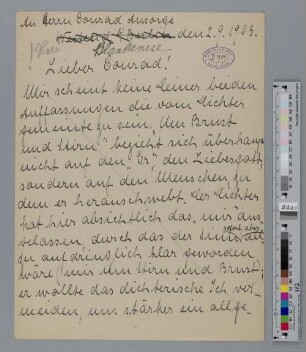 An Herrn Conrad Ansorge
Blankenese den 2.9.1903.
Lieber Conrad!
Mir scheint keine Deiner beiden
Auffassungen die vom Dichter
gemeinte zu sein. „Um Brust
und Stirn" bezieht sich überhaupt
nicht auf den „Er", den Liebesgott
sondern auf den Menschen zu
dem er herabschwebt. Der Dichter
hat hier absichtlich das „mir" aus-
gelassen, durch das der Sinn
zu aufdringlich klar geworden
wäre: mir um Stirn und Brust;
er wollte das dichterische Ich ver-
meiden, um stärker ein allge-